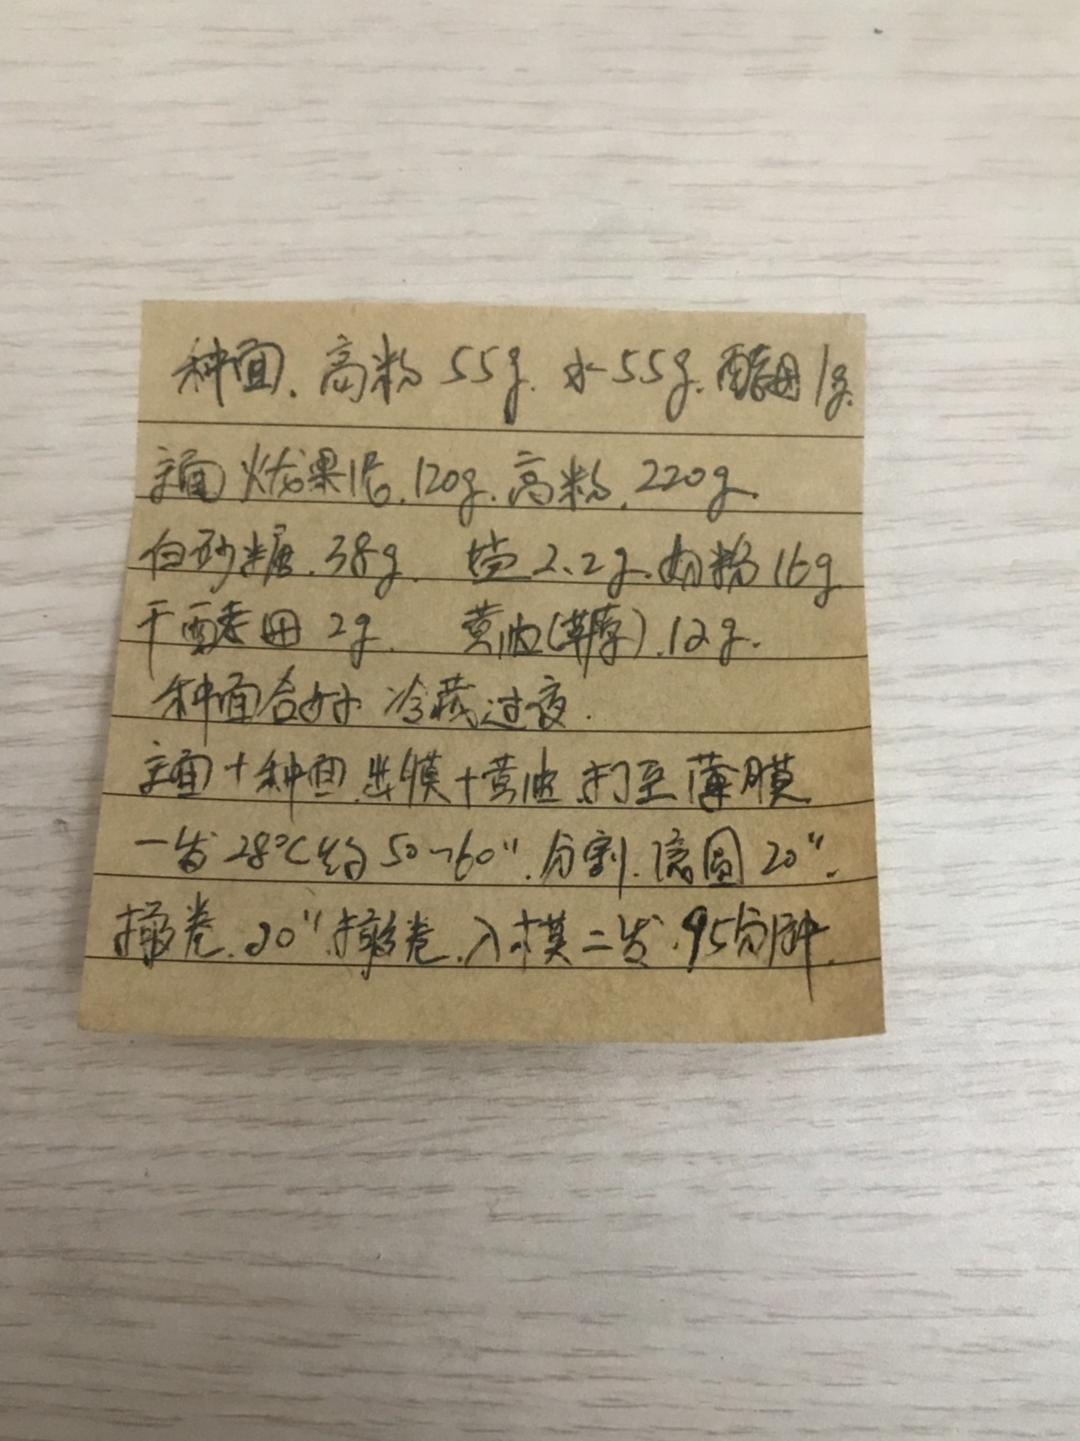 种面. 高粉 55g. 水55g. 酵母1g.
主面 火龙果汁.120g.高粉.220g.
白砂糖.38g. 盐2.2g.奶粉16g.
干酵母 2g. 黄油().12g.
种面合好 冷藏过夜.
主面+种面.出膜+黄油.打至薄膜
一发28℃约50~60".分割.滚圆20".
擀卷.20".擀卷.入模二发.95分钟.